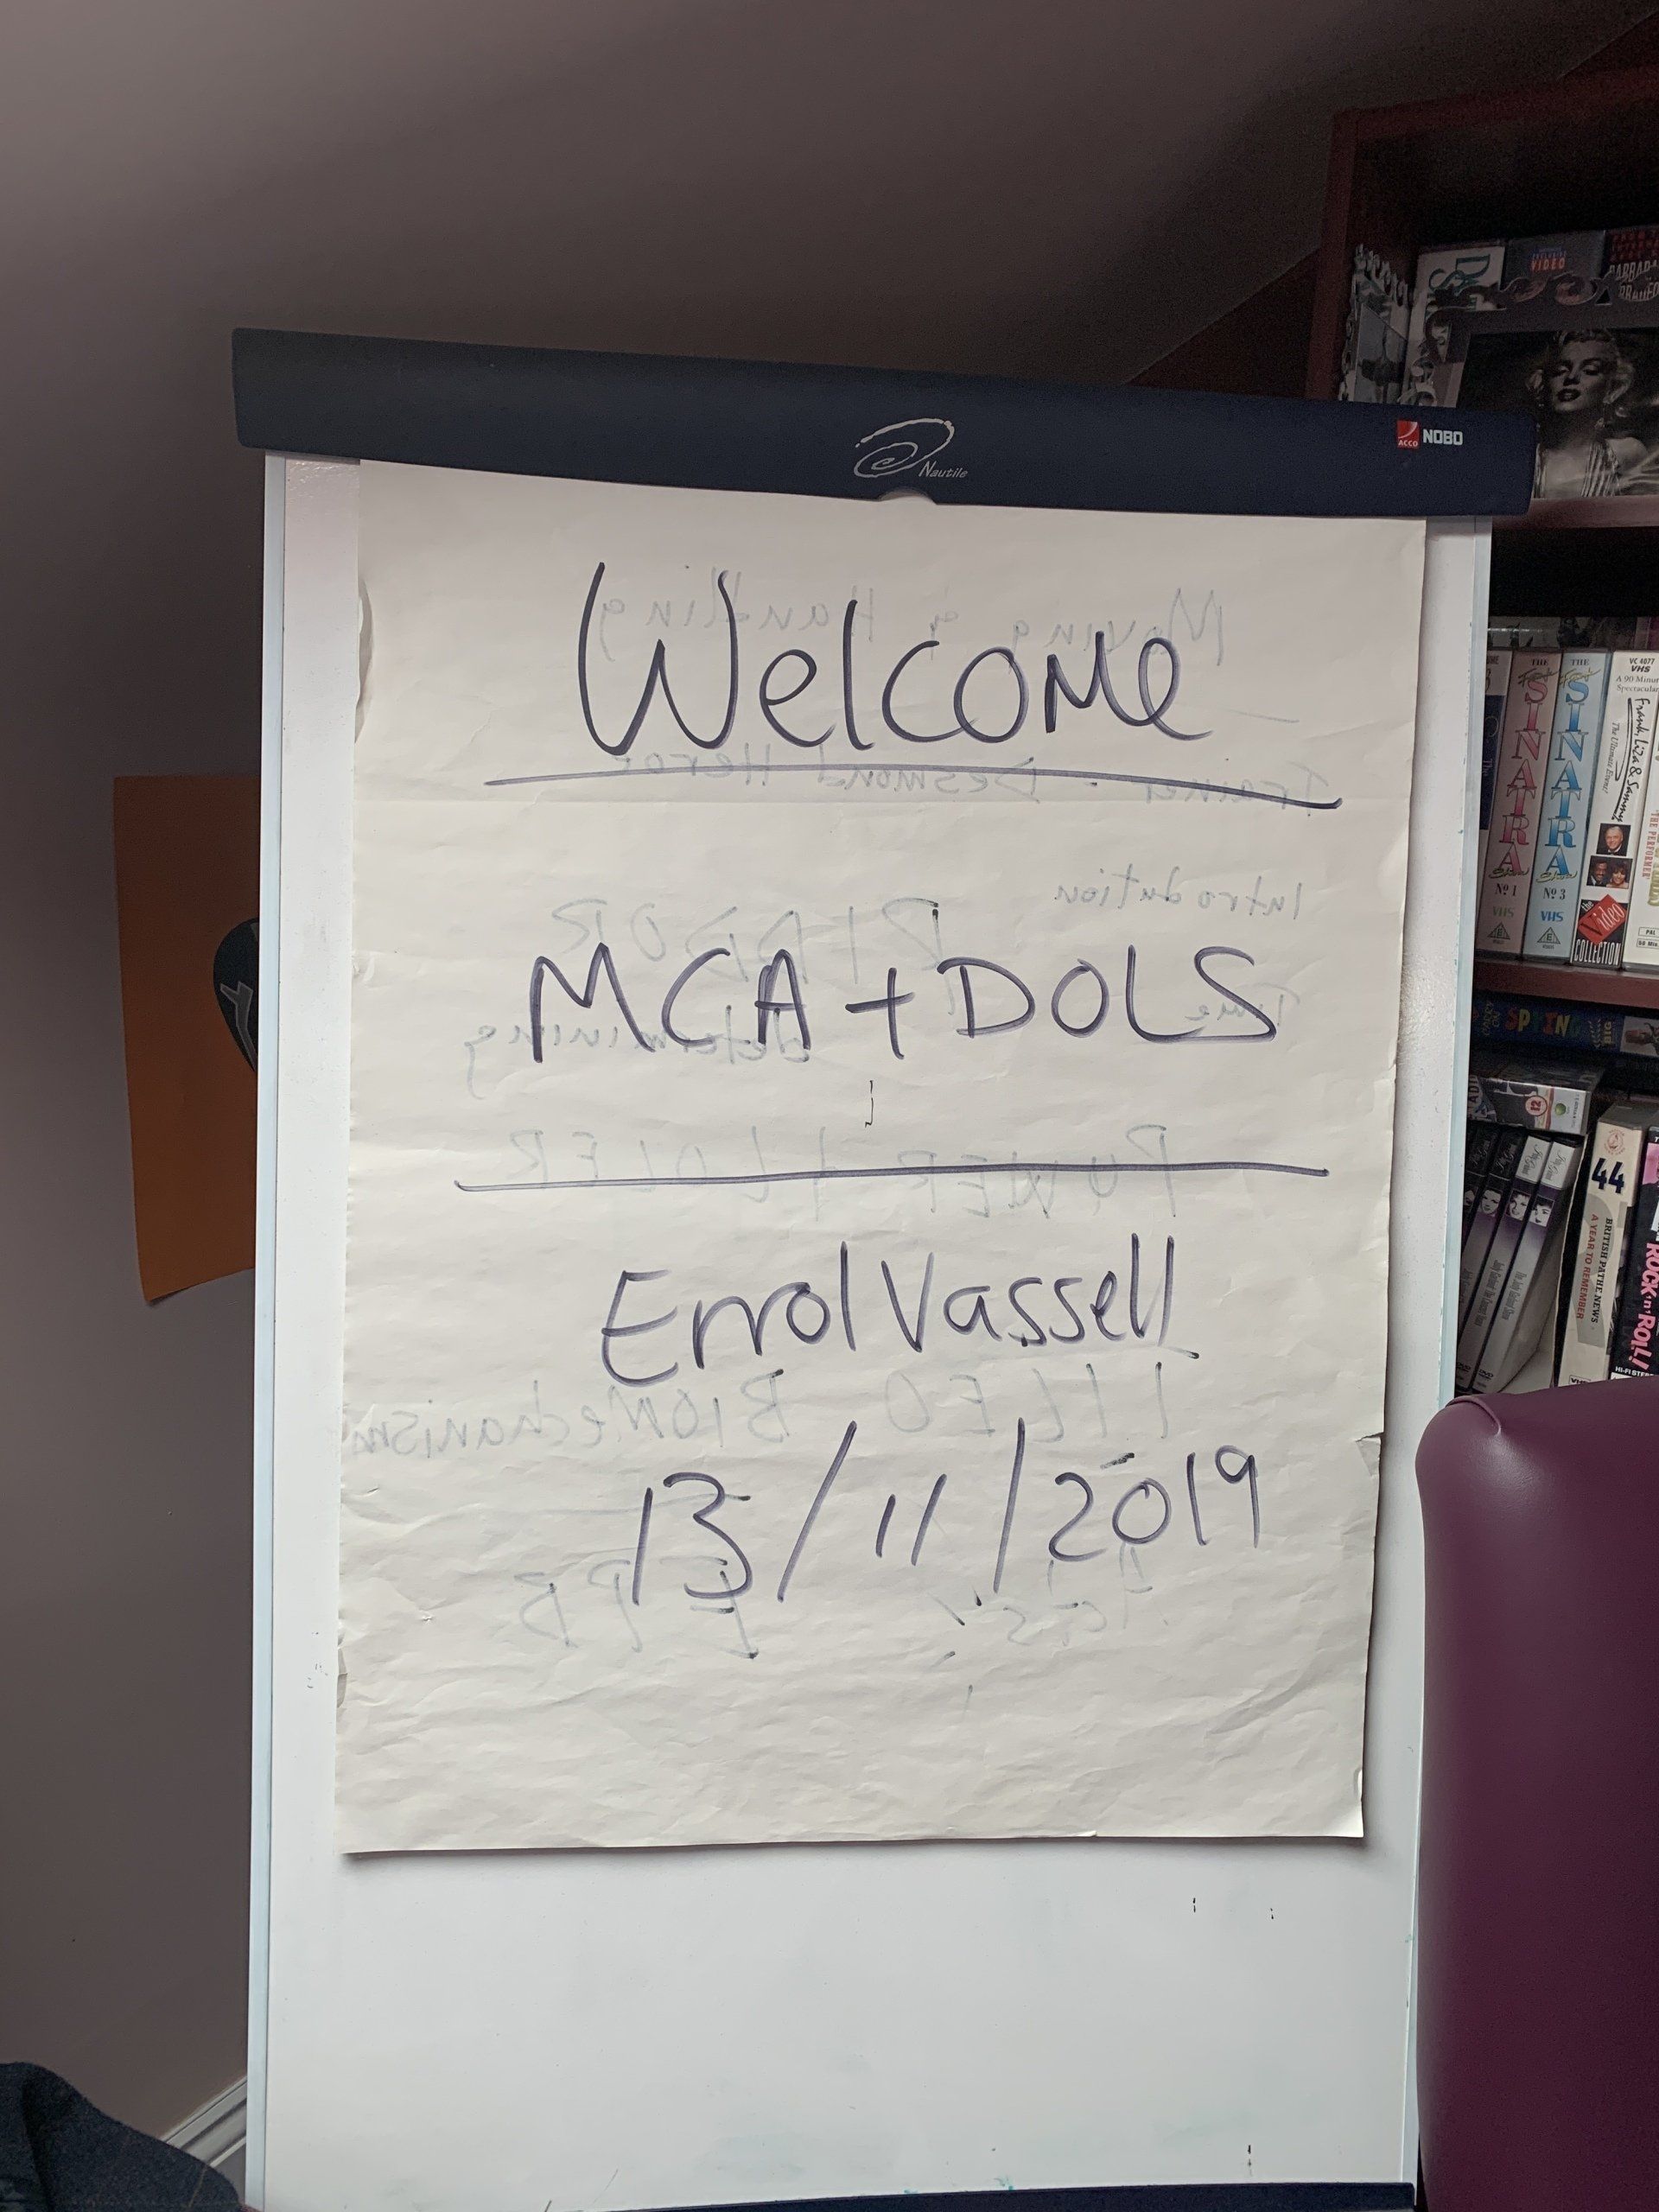 Nautile
ACCO NOBO
Welcome
MCA + DOLS
Errol Vassell
13/11/2019
Moving & Handling
Trainer - Desmond
Introdution
Time
determining
POWER + LOLER
BIOMechanism
VIDEO
THE
SINATRA
Nº 1
VHS
THE
SINATRA
Nº 3
VHS
VC 4077
VHS
Frank, Liza & Sammy
The Ultimate Event!
the Video
COLLECTION
PAL
THE PERFORMER
SPRING
12
44
BRITISH PATHE NEWS
A YEAR TO REMEMBER
ROCK 'n' ROLL!